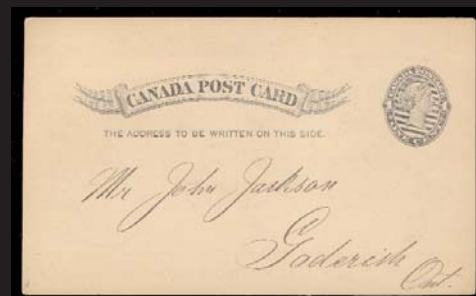 CANADA POST CARD
THE ADDRESS TO BE WRITTEN ON THIS SIDE.
Mr John Jackson
Goderich
Ont.